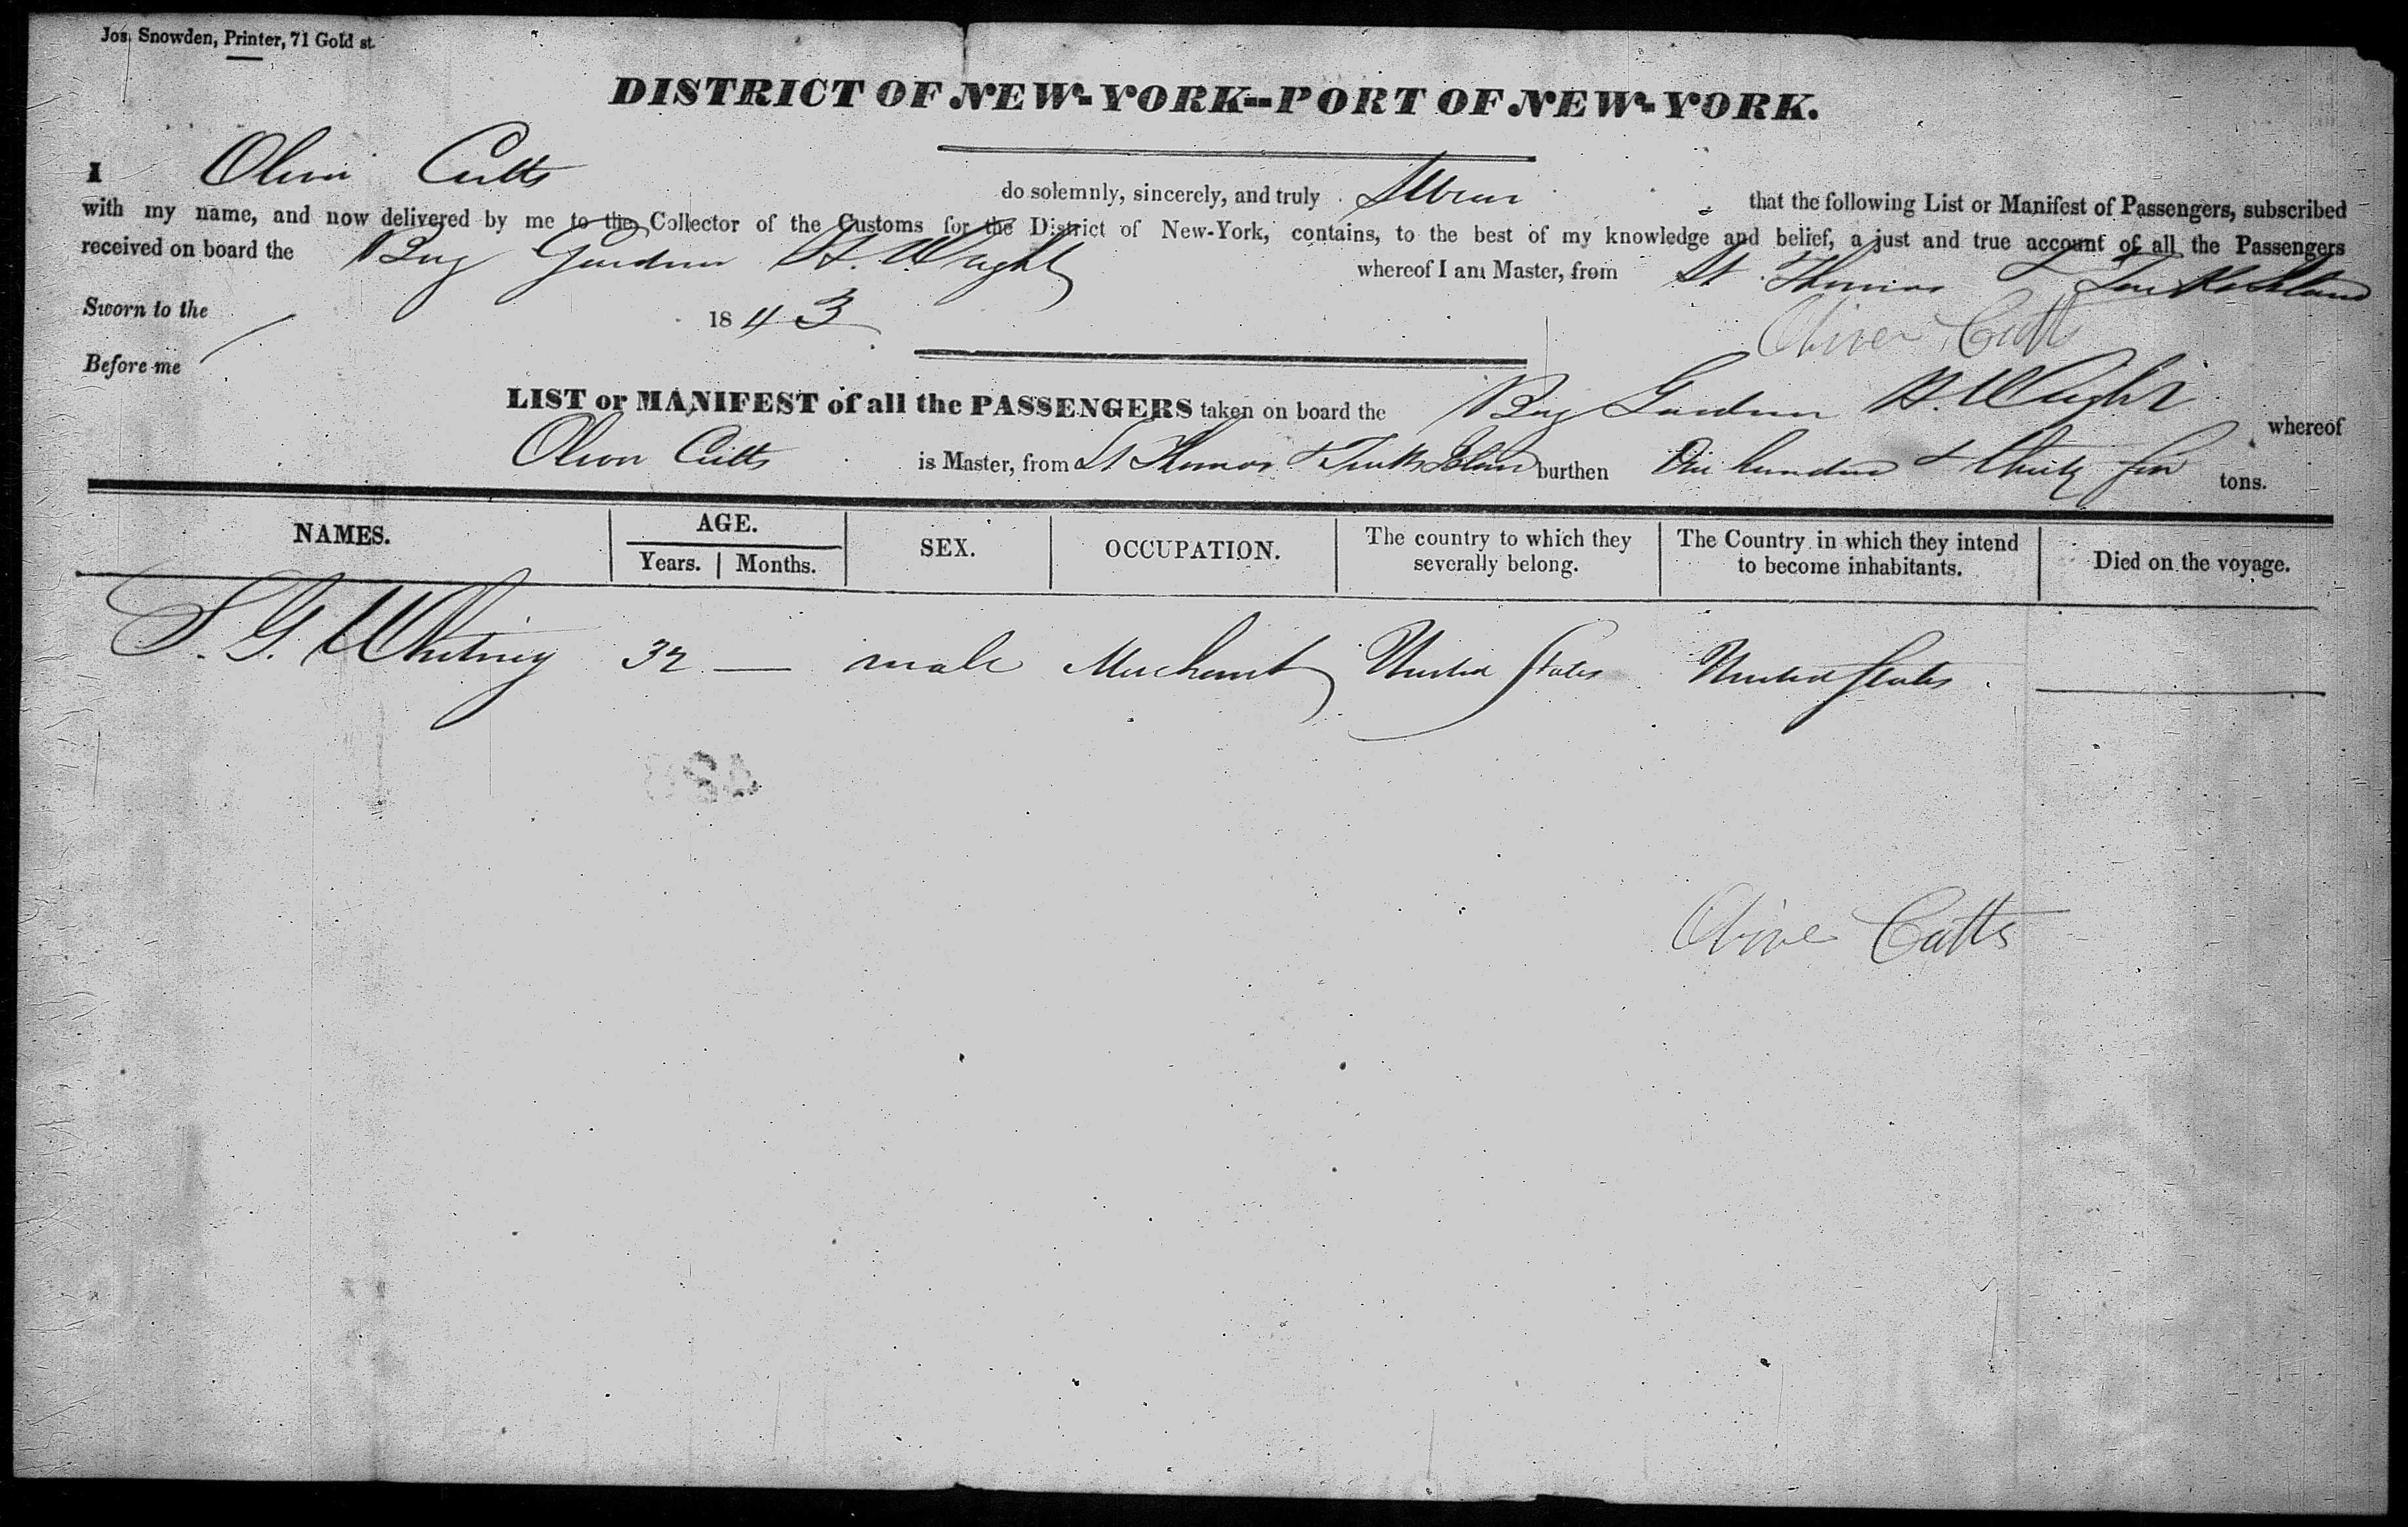 Jos. Snowden, Printer, 71 Gold st.
DISTRICT OF NEW-YORK--PORT OF NEW-YORK.
I Oliver Cutts do solemnly, sincerely, and truly Swear that the following List or Manifest of Passengers, subscribed
with my name, and now delivered by me to the Collector of the Customs for the District of New-York, contains, to the best of my knowledge and belief, a just and true account of all the Passengers
received on board the Brig Gardner H. Wright whereof I am Master, from St Thomas & Turks Island
Sworn to the 1843
Oliver Cutts
Before me
LIST or MANIFEST of all the PASSENGERS taken on board the Brig Gardner H. Wright whereof
Oliver Cutts is Master, from St Thomas & Turks Island burthen One hundred & thirty tons.
NAMES. AGE. Years. Months. SEX. OCCUPATION. The country to which they severally belong. The Country in which they intend to become inhabitants. Died on the voyage.
S. G. Whitney 32 — male Merchant United States United States.
Oliver Cutts